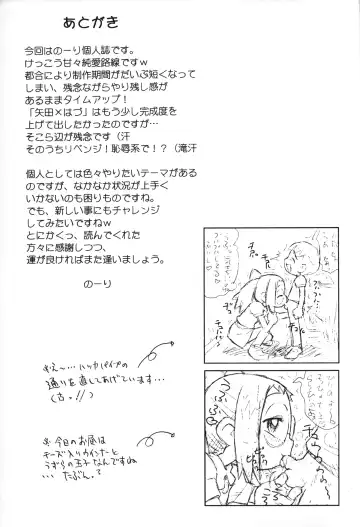 あとがき
今回はのーり個人誌です。
けっこう甘々純愛路線ですｗ
都合により制作期間がだいぶ短くなって
しまい、残念ながらやり残し感が
あるままタイムアップ！
「矢田×はづ」はもう少し完成度を
上げて出したかったのですが…
そこら辺が残念です（汗
そのうちリベンジ！恥辱系で！？（滝汗
個人としては色々やりたいテーマがある
のですが、なかなか状況が上手く
いかないのも困りものですね。
でも、新しい事にもチャレンジ
してみたいですねｗ
とにかくっ、読んでくれた
方々に感謝しつつ、
運が良ければまた逢いましょう。
のーり
※え〜…ハッカパイプの
通りを直してあげています…
※今日のお昼は
チーズ入りウインナーと
うずらの玉子なんですね
…たぶん。？